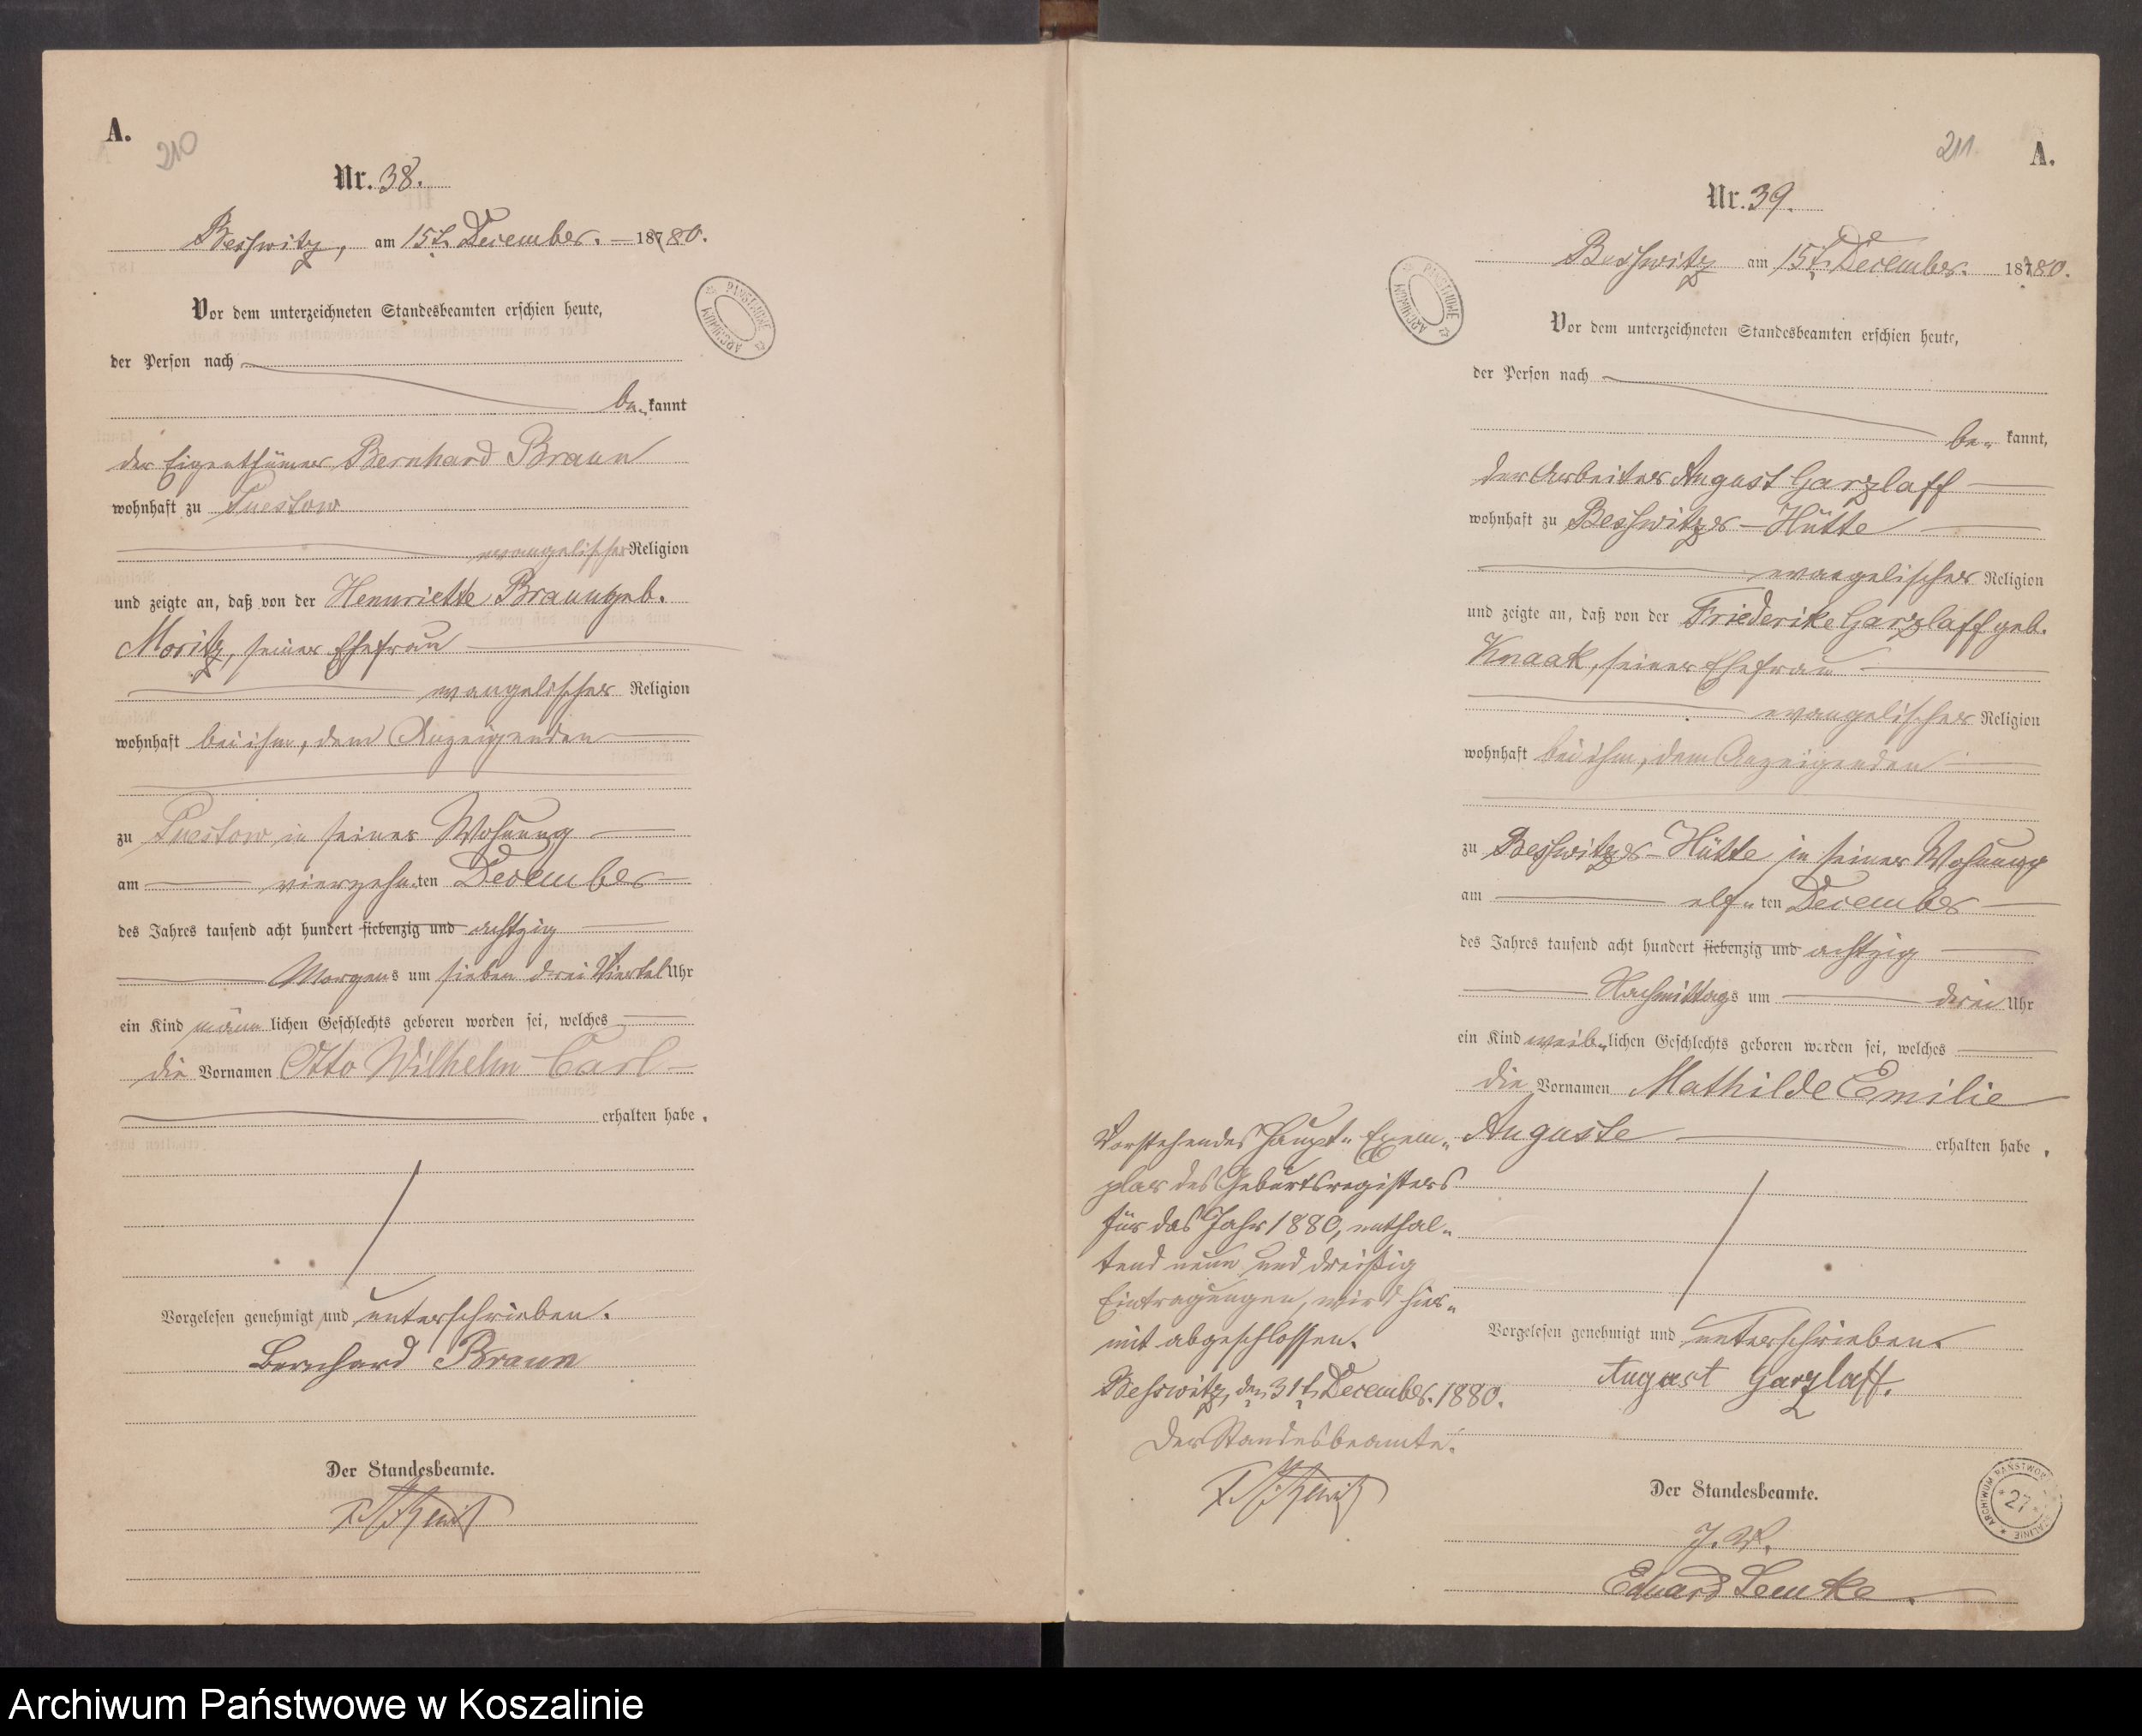 A.
210
Nr. 38.
Beßwitz, am 15t. December. 18780.
Vor dem unterzeichneten Standesbeamten erschien heute,
der Person nach
be= kannt
der Eigenthümer Bernhard Braun
wohnhaft zu Puestow
evangelischer Religion
und zeigte an, daß von der Hennriette Braun geb.
Moritz, seiner Ehefrau
evangelischer Religion
wohnhaft bei ihm, dem Anzeigenden
zu Puestow in seiner Wohnung
am vierzehn=ten December
des Jahres tausend acht hundert siebenzig und achtzig
Morgens um sieben drei Viertel Uhr
ein Kind männlichen Geschlechts geboren worden sei, welches
die Vornamen Otto Wilhelm Carl
erhalten habe.
Vorgelesen genehmigt und unterschrieben.
Bernhard Braun
Der Standesbeamte.
ARCHIWUM PAŃSTWOWE
211
A.
Nr. 39.
Beßwitz am 15t. December. 18780.
Vor dem unterzeichneten Standesbeamten erschien heute,
der Person nach
be= kannt,
der Arbeiter August Garzlaff
wohnhaft zu Beßwitzer-Hütte
evangelischer Religion
und zeigte an, daß von der Friederike Garzlaff geb.
Knaak, seiner Ehefrau
evangelischer Religion
wohnhaft bei ihm, dem Anzeigenden
zu Beßwitzer-Hütte in seiner Wohnung
am elf=ten December
des Jahres tausend acht hundert siebenzig und achtzig
Nachmittags um drei Uhr
ein Kind weib=lichen Geschlechts geboren worden sei, welches
die Vornamen Mathilde Emilie
Auguste erhalten habe.
Vorgelesen genehmigt und unterschrieben.
August Garzlaff.
Der Standesbeamte.
J. V.
Eduard Lemke.
Vorstehendes Haupt=Exem=
plar des Geburtsregisters
für das Jahr 1880, enthal=
tend neun und dreißig
Eintragungen, wird hier=
mit abgeschlossen.
Beßwitz, den 31t. December. 1880.
Der Standesbeamte.
ARCHIWUM PAŃSTWOWE
27
Archiwum Państwowe w Koszalinie